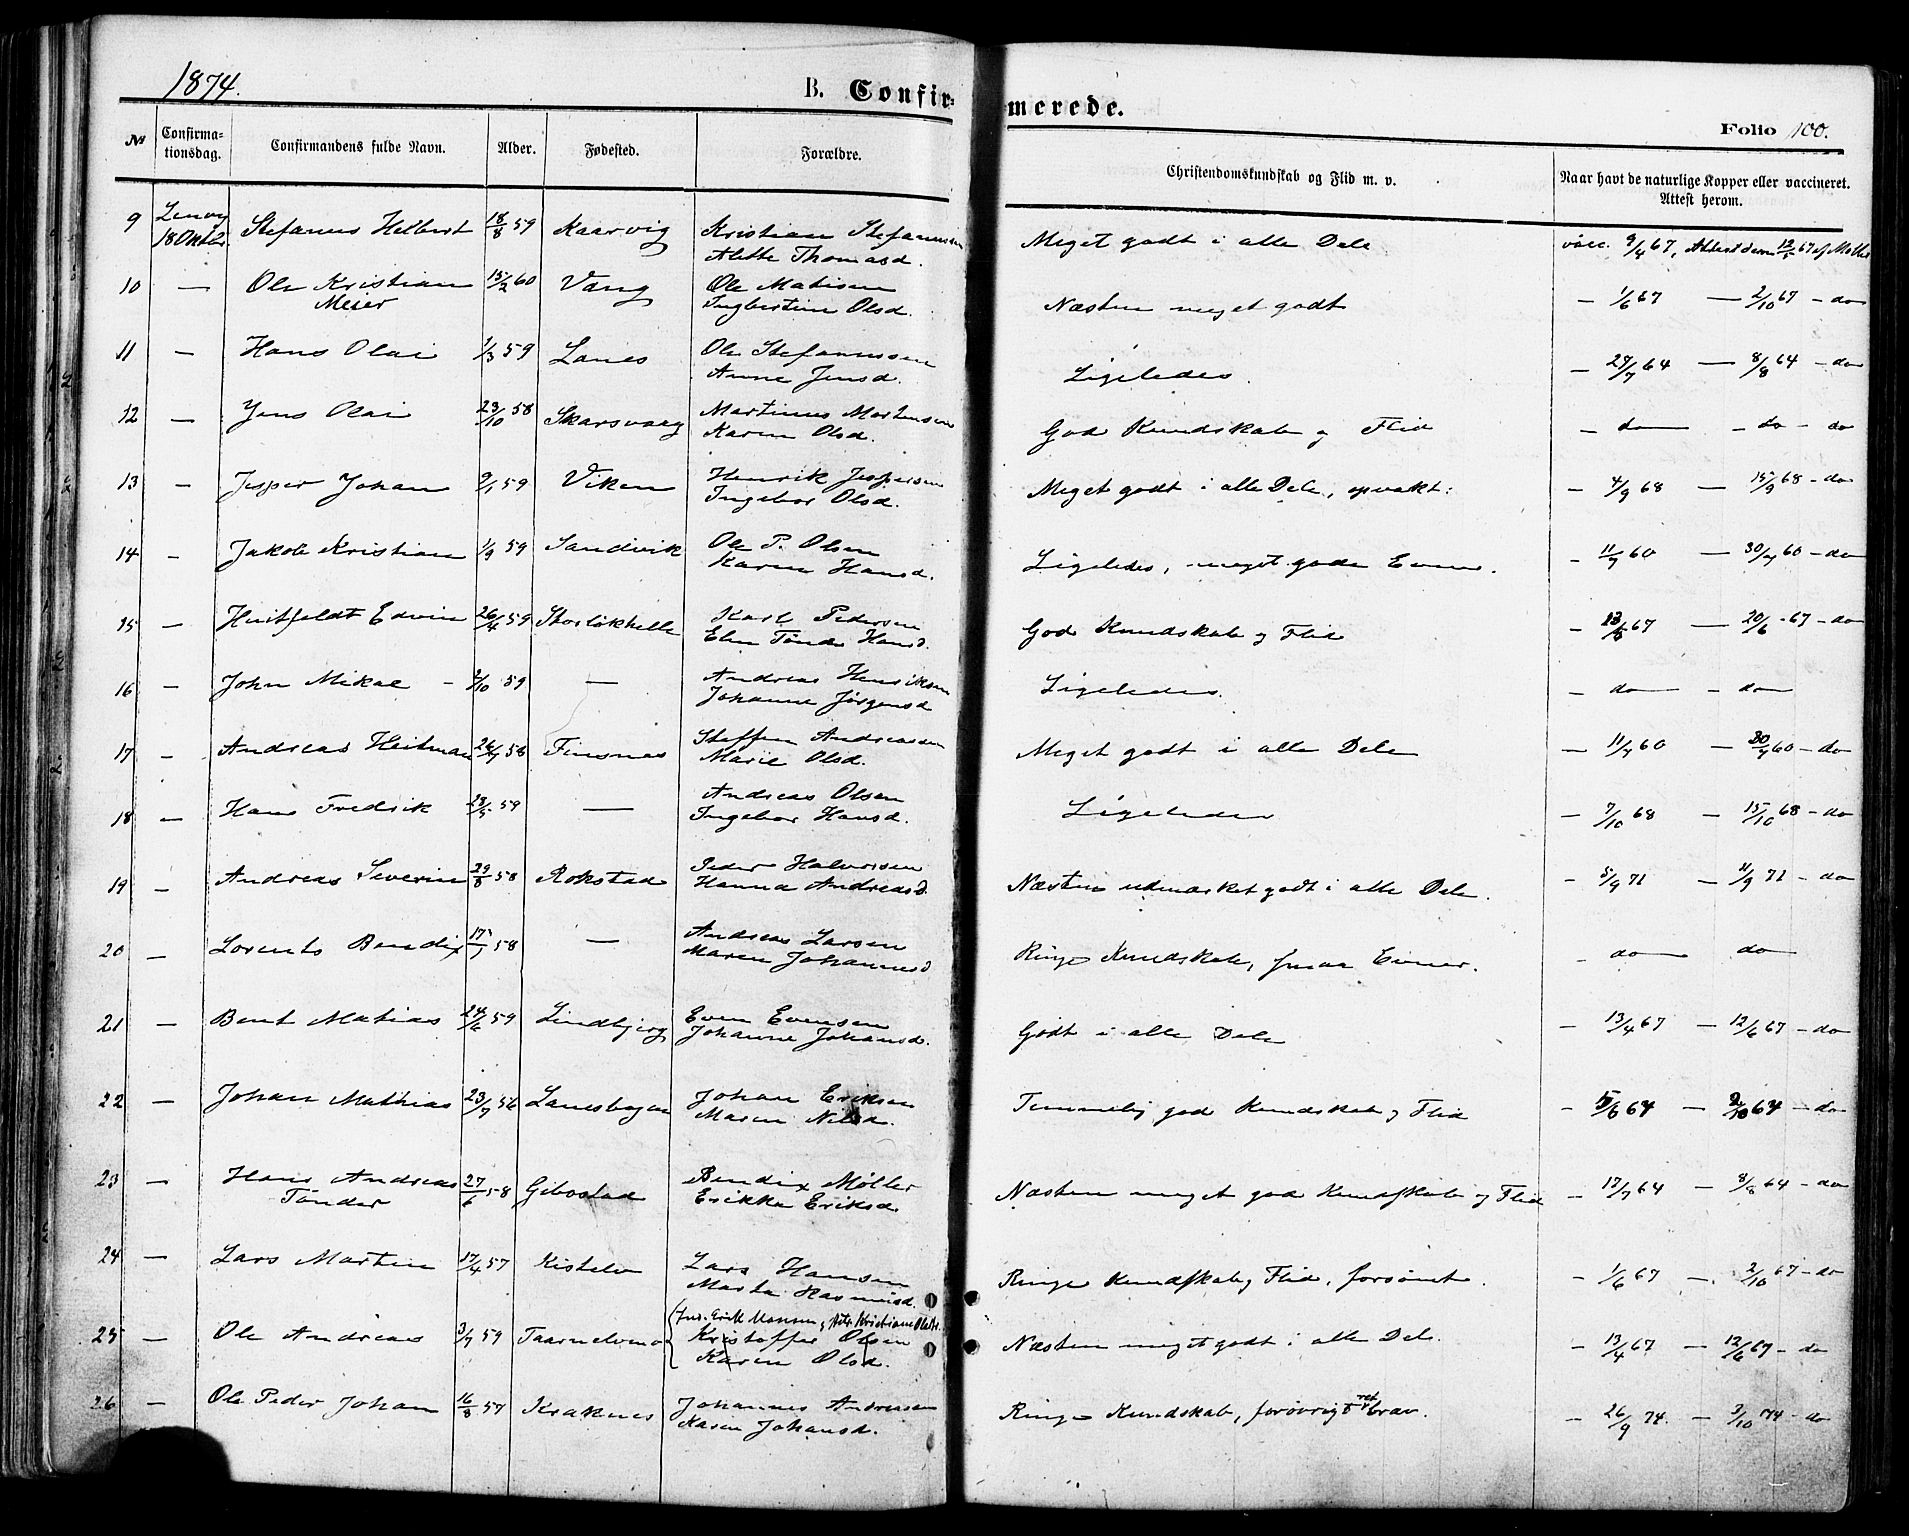 1874.
B. Confir-
merede.
Folio 100.
№ Confirma-tionsdag. Confirmandens fulde Navn. Alder. Fødested. Forældre. Christendomskundskab og Flid m. v. Naar havt de naturlige Kopper eller vaccineret. Attest herom.
9 Lenvig 18 Oktbr Stefanus Helbert 18/8 59 Kaarvig Kristian Stefanussen Alette Thomasd. Meget godt i alle Dele vacc. 9/4 67, Attest derom 12/5 67 af
10 — Ole Kristian Meier 15/2 60 Vang Ole Matisen Ingbertine Olsd. Næsten meget godt — 1/6 67 — 2/10 67 — do
11 — Hans Olai 1/3 59 Lanes Ole Stefanussen Anne Jensd. Ligeledes. — 27/7 64 — 8/8 64 — do
12 — Jens Olai 23/10 58 Skarsvaag Martinus Mortensen Karen Olsd. God Kundskab og Flid — do — — do — do
13 — Jesper Johan 9/1 59 Viken Henrik Jespersen Ingebor Olsd. Meget godt i alle Dele, opvakt: — 4/9 68 — 15/9 68 — do
14 — Jakob Kristian 1/9 59 Sandvik Ole P. Olsen Karen Hansd. Ligeledes, meget gode Evner. — 11/7 60 — 30/7 60 — do
15 — Huitfeldt Edvin 26/4 59 Storløkhelle Karl Pedersen Elen Tønder Hansd. God Kundskab og Flid — 23/5 67 — 20/6 67 — do
16 — John Mikal 2/10 59 — Andreas Henriksen Johanne Jørgensd Ligeledes. — do — — do —
17 — Andreas Heitman 26/7 58 Finsnes Steffen Andreassen Marie Olsd. Meget godt i alle Dele — 11/7 60 — 30/7 60 — do
18 — Hans Fredrik 23/5 59 — Andreas Olsen Ingebor Hansd. Ligeledes — 7/10 68 — 15/10 68 — do
19 — Andreas Severin 29/8 58 Rokstad Peder Halvorsen Hanna Andreasd. Næsten udmærket godt i alle Dele. — 5/9 71 — 11/9 71 — do
20 — Lorents Bendix 17/1 58 — Andreas Larsen Maren Johannesd Ringe Kundskab, smaa Evner. — do — do
21 — Bent Matias 24/6 59 Lindbjerg Even Evensen Johanne Johansd. Godt i alle Dele — 13/4 67 — 12/6 67 — do
22 — Johan Mathias 23/7 56 Lanesbogen Johan Eriksen Maren Nilsd. Temmelig god Kundskab og Flid — 5/6 64 — 2/10 64 — do
23 — Hans Andreas Tønder 27/6 58 Gibostad Bendix Møller Erikke Eriksd. Næsten meget god Kundskab og Flid — 17/7 64 — 8/8 64 — do
24 — Lars Martin 17/4 57 Kistelv Lars Hansen Marta Rasmusd. Ringe Kundskab og Flid, forsømt. — 1/6 67 — 2/10 67 — do
25 — Ole Andreas 3/7 59 Taarnelvmo Kristoffer Olsen Karen Olsd. Næsten meget godt i alle Dele. — 13/4 67 — 12/6 67 — do
26 — Ole Peder Johan 16/8 57 Kraknes Johannes Andersen Karen Johansd. Ringe Kundskab, forøvrigt ret brav. — 26/9 74. — 3/10 74 — do